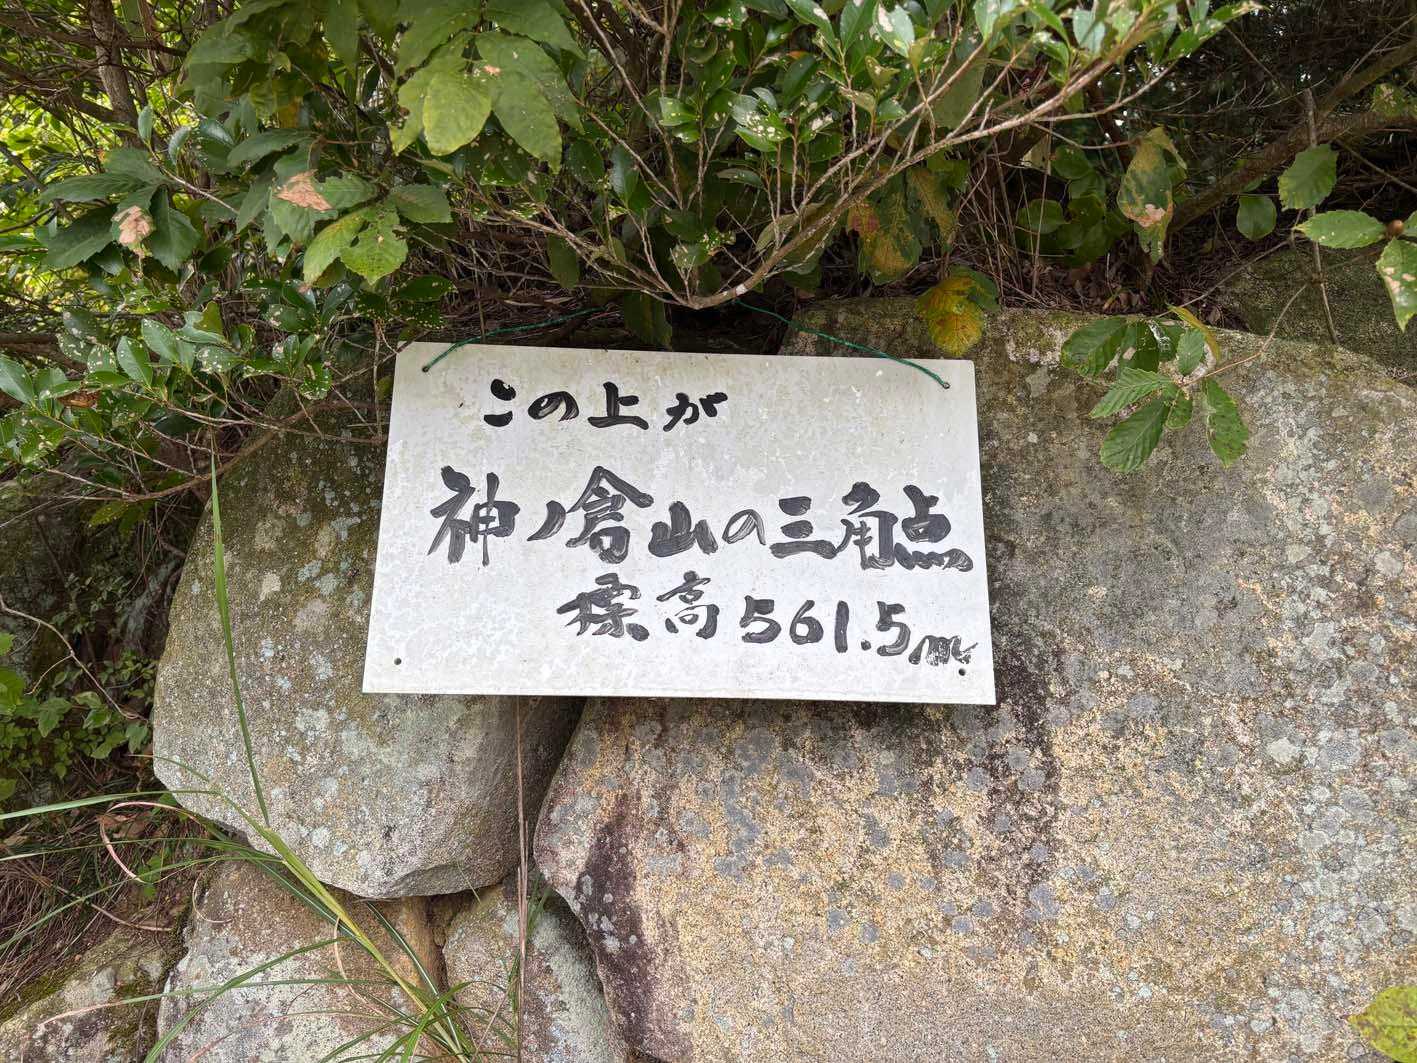 この上が
神ノ倉山の三角点
標高561.5m